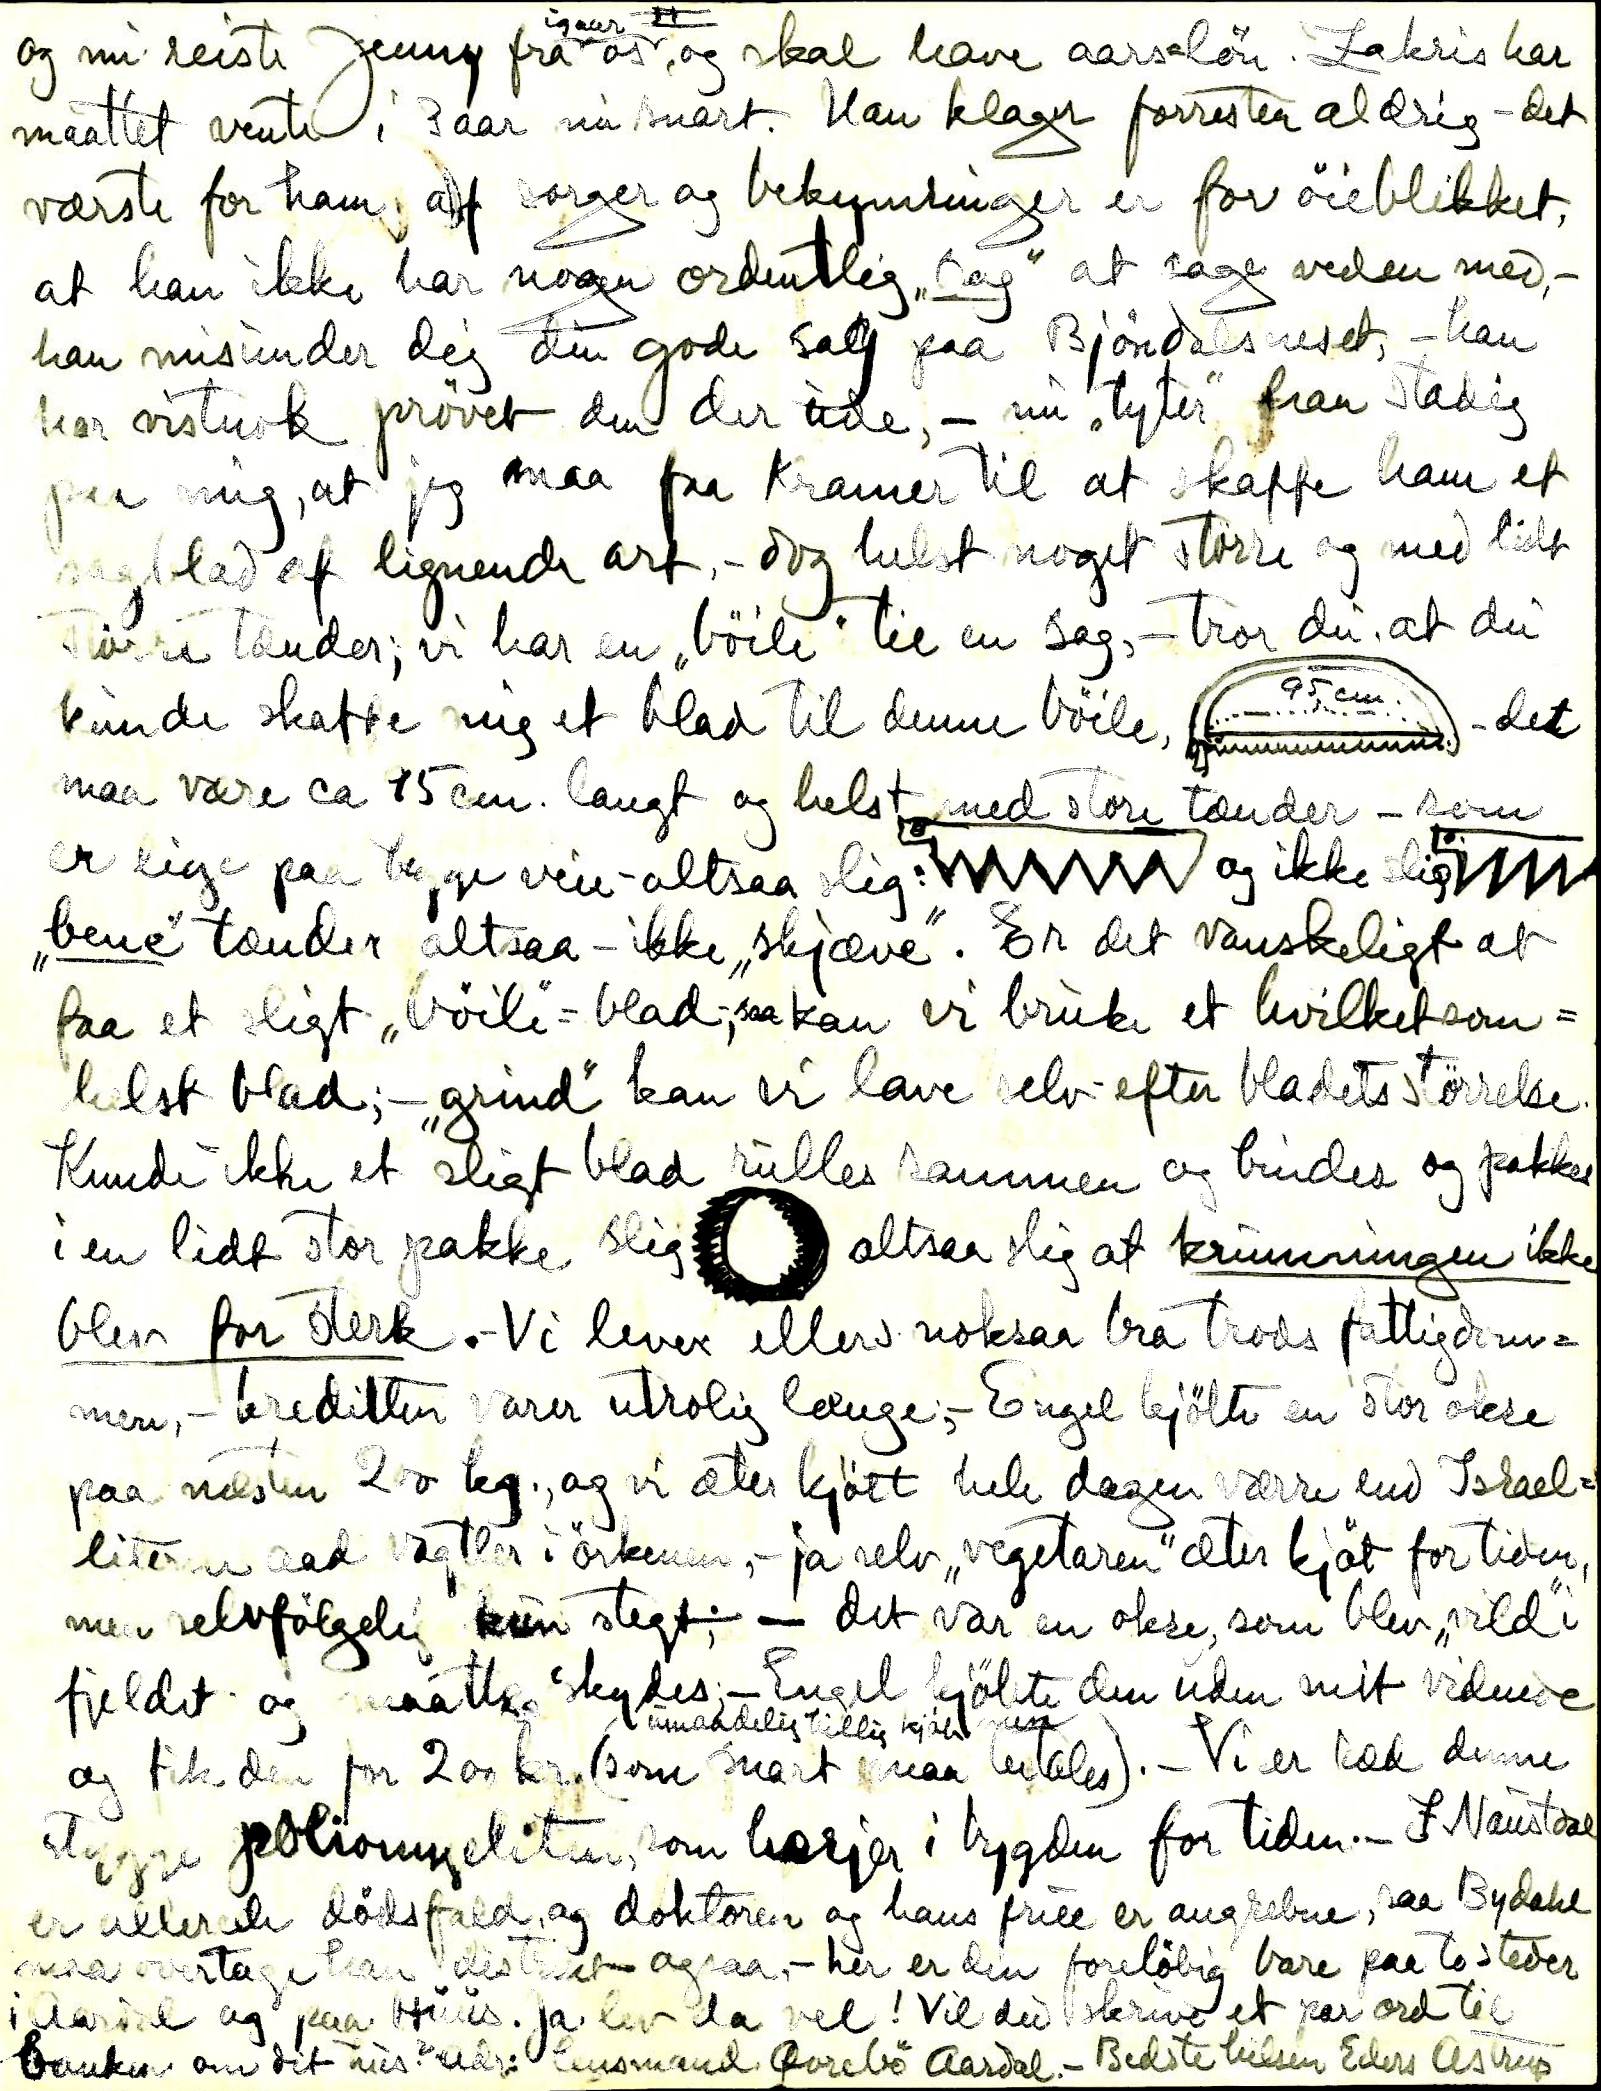 og nu reiste Jenny fra os igaar, og skal have aars=lön. Zakris har
maattet vente i 3 aar nu snart. Han klager forresten aldrig - det
værste for ham af sorger og bekymringer er for öieblikket,
at han ikke har nogen ordentlig „sag" at sage veden med, -
han misunder dig din gode sag paa Bjöndalsneset, - han
har vistnok prövet den der ude, - nu „tyter" han stadig
paa mig, at jeg maa faa Kramer til at skaffe ham et
sagblad af lignende art, - dog helst noget större og med lidt
större tænder; vi har en „böile" til en sag, - tror du at du
kunde skaffe mig et blad til denne böile, 95 cm. - det
maa være ca 95 cm. langt og helst med store tænder - som
er lige paa begge veie - altsaa slig: og ikke slig
„bene" tænder altsaa - ikke „skjæve". Er det vanskeligt at
faa et sligt „böile"=blad, saa kan vi bruke et hvilketsom=
helst blad; - „grind" kan vi lave selv efter bladets större​lse.
Kunde ikke et sligt blad rulles sammen og bindes og pakkes
i en lidt stor pakke slig altsaa slig at krumningen ikke
blev for sterk. - Vi lever ellers noksaa bra trods fattigdom=
men, - kreditten varer utrolig længe; - Engel kjöbte en stor okse
paa næsten 200 kg., og vi æter kjött hele dagen værre end Israel=
literne aad vagtler i örkenen, - ja selv „vegetaren" æter kjöt for tiden,
men selvfölgelig kun stegt; - det var en okse, som blev „vild" i
fjeldet og maatte skydes; - Engel kjöbte den uden mit vidende
og fik den for 200 kr. umaadelig billig kjöb (som snart maa betales). - Vi er ræd denne
stygge poliomyeliten, som herjer i bygden for tiden. - I Naustdal
er allerede dödsfald, og doktoren og hans frue er angrebne, saa Bydahl
maa overtage han distrikt ogsaa, - her er den forelöbig bare paa to steder
i Aardal og paa Huus. Ja lev da vel! Vil du skrive et par ord til
banken om dit hus? Adr: lensmand Övrebö Aardal. - Bedste hilsen Eders Astrup